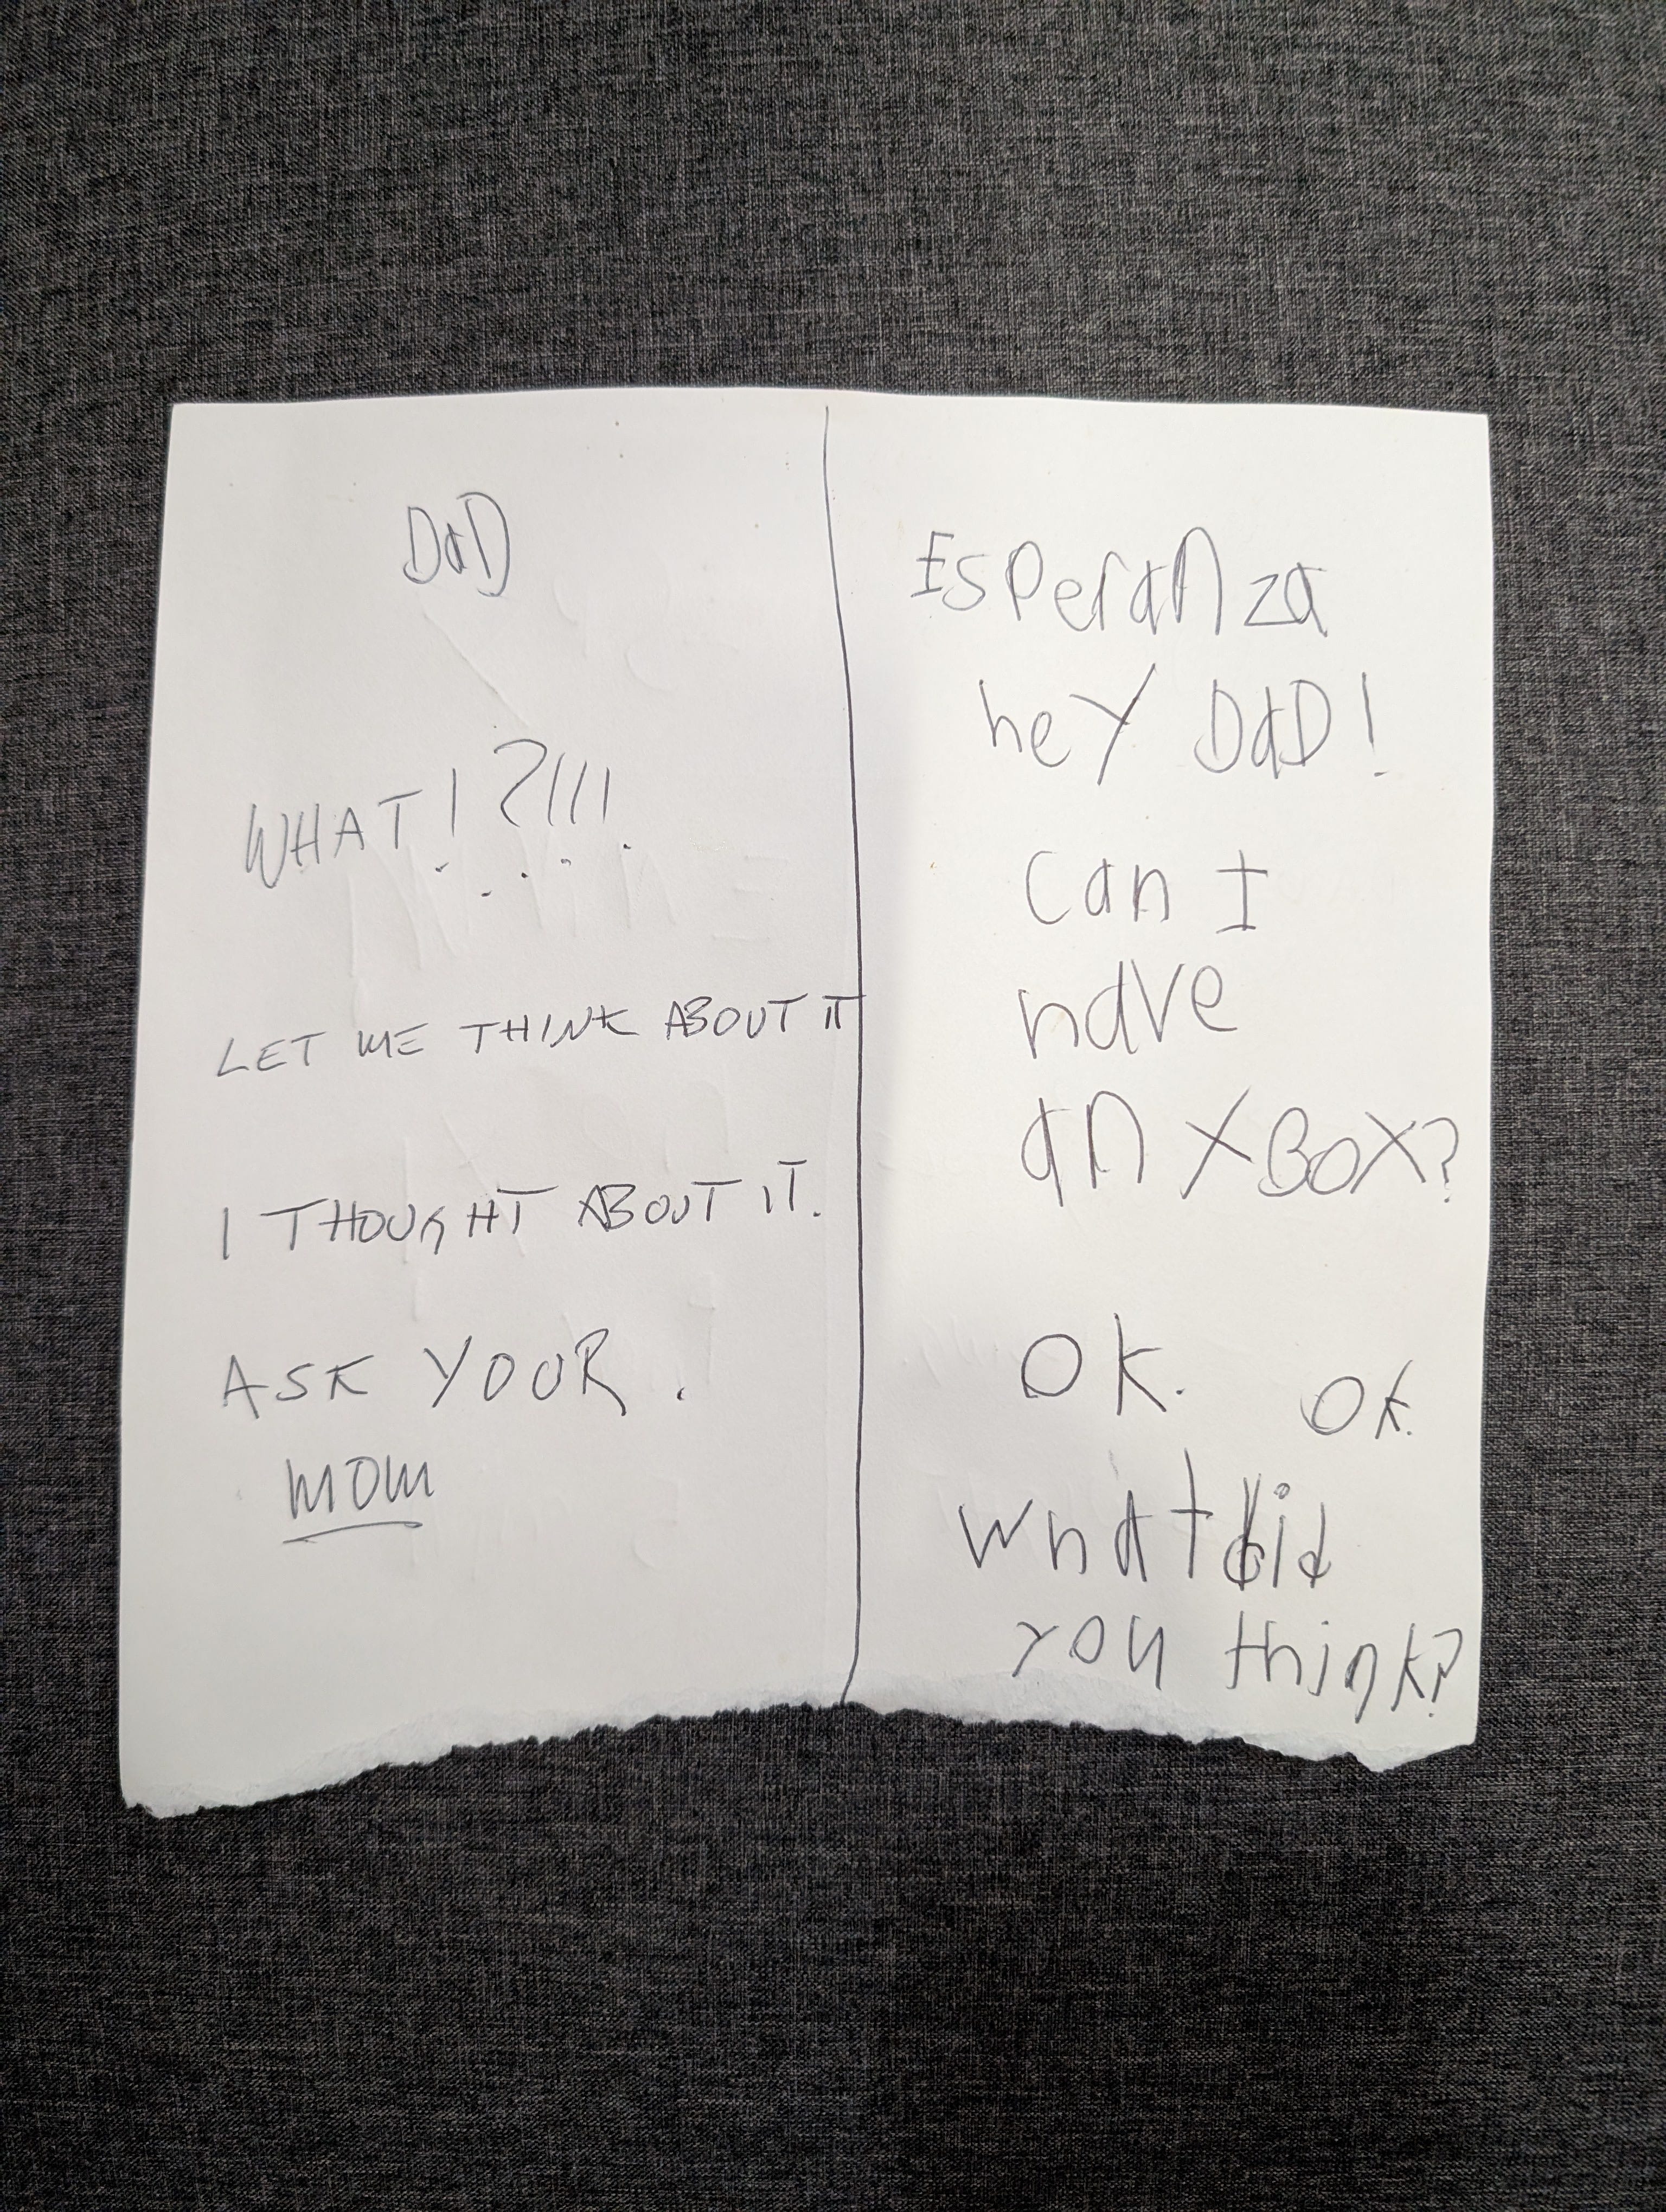 DaD
WHAT!?!!!
LET ME THINK ABOUT IT
I THOUGHT ABOUT IT.
ASK YOUR.
MOM
Esperanza
hey DaD!
can I
have
an XBOX?
OK. OK.
what did
you think?